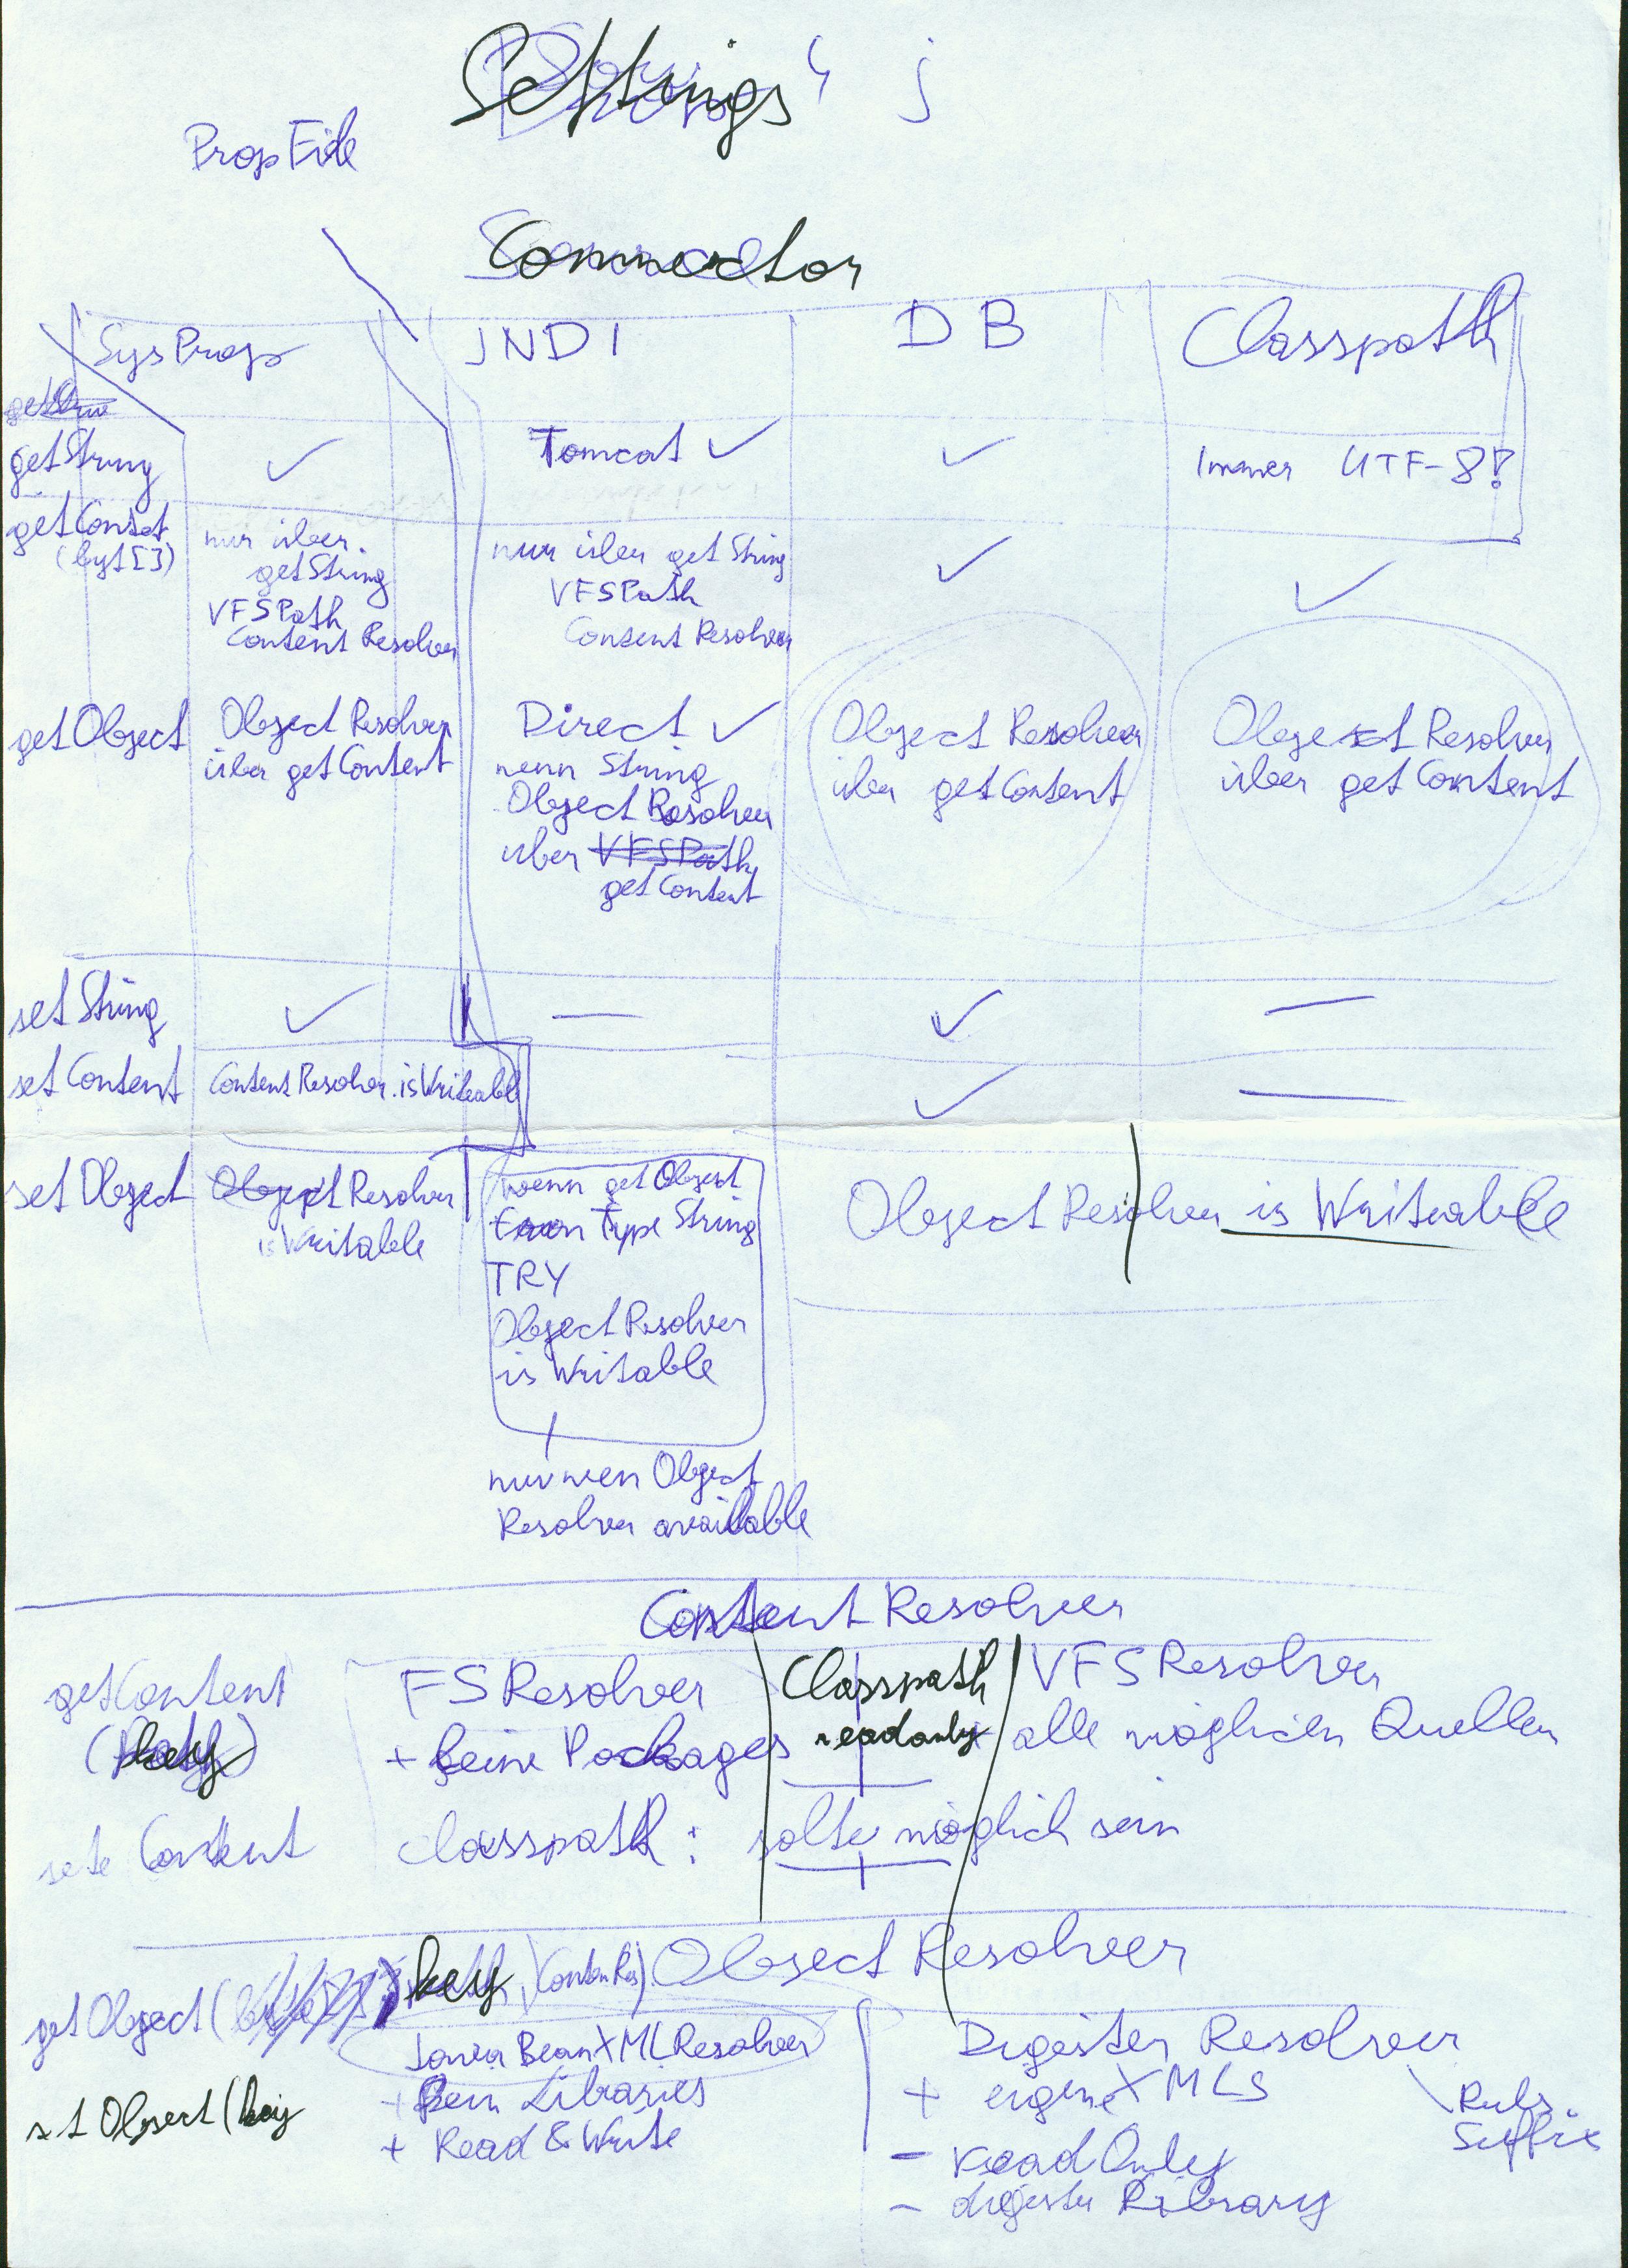 Settings 4 j
PropFile
Connector
SysProp JNDI DB Classpath
getString ✓ Tomcat ✓ ✓ Immer UTF-8!
getContet
(byt[]) nur über getString VFSPath Content Resolver
nur über getString VFSPath Content Resolver
✓ ✓
getObject
Object Resolver
über getContent
Direct ✓
wenn String
Object Resolver
über VFSPath
getContent
Object Resolver
über getContent
Object Resolver
über getContent
setString ✓ — ✓ —
setContent ContentResolver.isWriteable ✓ —
setObject
Object Resolver
isWritable
wenn getObject
Type String
TRY
Object Resolver
is Writable
Object Resolver is Writeable
nur wen Object
Resolver available
Content Resolver
getContent
(key)
FS Resolver
+ keine Packages
Classpath
readonly
VFS Resolver
alle möglichen Quellen
sete Content
classpath : sollte möglich sein
Object Resolver
getObject( key, ContenRes)
setObject(key
Java Bean XML Resolver
+ kein Libraries
+ Read & Write
Digester Resolver
+ eigene XMLs
- readOnly
- digester Library
Rules.
Suffix